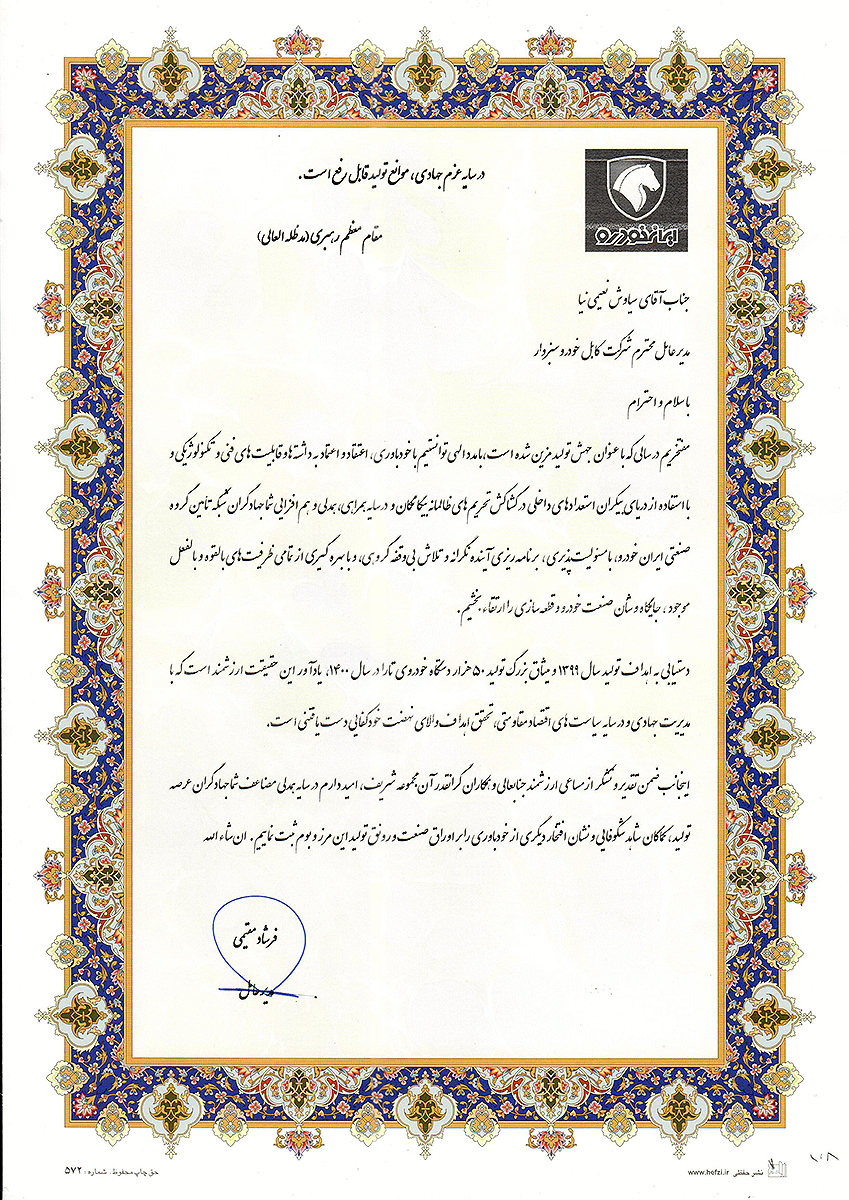 در سایه عزم جهادی، موانع تولید قابل رفع است.
ایران خودرو
مقام معظم رهبری (مد ظله العالی)
جناب آقای سیاوش نعیمی نیا
مدیر عامل محترم شرکت کابل خودرو سبزوار
با سلام و احترام
مفتخریم در سالی که با عنوان جهش تولید مزین شده است، با مدد الهی توانستیم با خودباوری، اعتقاد و اعتماد به داشته ها و قابلیت های فنی و تکنولوژیکی و
با استفاده از دریای بیکران استعدادهای داخلی در کشاکش تحریم های ظالمانه بیگانگان و در سایه همراهی، همدلی و هم افزایی شما جهادگران شبکه تأمین گروه
صنعتی ایران خودرو، با مسئولیت پذیری، برنامه ریزی آینده نگرانه و تلاش بی وقفه گروهی، و با بهره گیری از تمامی ظرفیت های بالقوه و بالفعل
موجود، جایگاه و شأن صنعت خودرو و قطعه سازی را ارتقاء بخشیم.
دستیابی به اهداف تولید سال ۱۳۹۹ و میثاق بزرگ تولید ۵۰ هزار دستگاه خودروی تارا در سال ۱۴۰۰، یادآور این حقیقت ارزشمند است که با
مدیریت جهادی و در سایه سیاست های اقتصاد مقاومتی، تحقق اهداف والای نهضت خودکفایی دست یافتنی است.
اینجانب ضمن تقدیر و تشکر از مساعی ارزشمند جنابعالی و همکاران گرانقدر آن مجموعه شریف، امید دارم در سایه همدلی مضاعف شما جهادگران عرصه
تولید، کماکان شاهد شکوفایی و نشان افتخار دیگری از خودباوری را بر اوراق صنعت و رونق تولید این مرز و بوم ثبت نماییم. ان شاء الله
فرشاد مقیمی
مدیر عامل
حق چاپ محفوظ. شماره: ۵۷۲
نشر حفظی www.hefzi.ir
۱۰۸